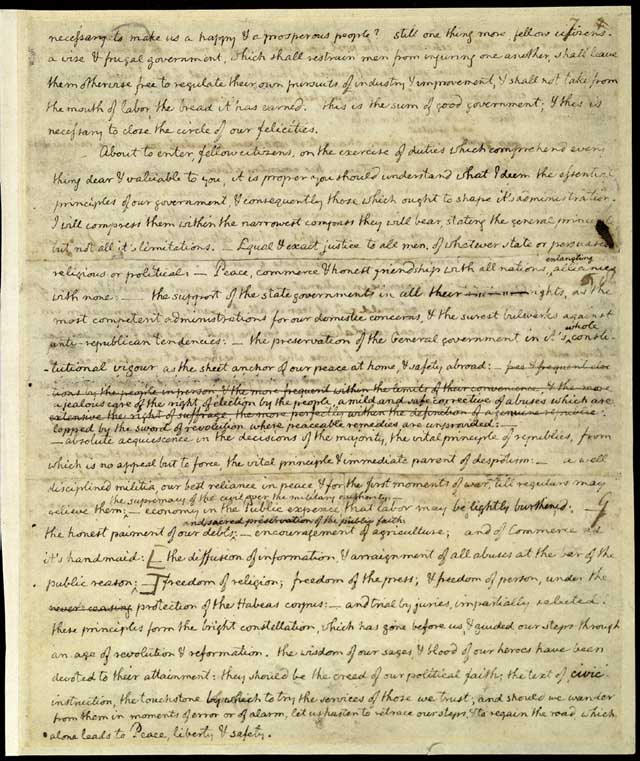 necessary to make us a happy & a prosperous people? still one thing more, fellow citizens.
a wise & frugal government, which shall restrain men from injuring one another, shall leave
them otherwise free to regulate their own pursuits of industry & improvement, & shall not take from
the mouth of labor the bread it has earned. this is the sum of good government; & this is
necessary to close the circle of our felicities.
About to enter, fellow citizens, on the exercise of duties which comprehend every
thing dear & valuable to you, it is proper you should understand what I deem the essential
principles of our government & consequently those which ought to shape it's administration.
I will compress them within the narrowest compass they will bear, stating the general principle
but not all it's limitations. Equal & exact justice to all men, of whatever state or persuasion
religious or political: — Peace, commerce & honest friendship with all nations, entangling alliances
with none: — the support of the state governments in all their rights, as the
most competent administrations for our domestic concerns, & the surest bulwarks against
anti-republican tendencies: — the preservation of the General government in it's whole consti-
tutional vigour as the sheet anchor of our peace at home, & safety abroad: — free & frequent elec
tions by the people in person, & the more frequent within the limits of their convenience, & the more
a jealous care of the right of election by the people, a mild and safe corrective of abuses which are
extensive the right of suffrage the more perfectly within the definition of a genuine republic:
lopped by the sword of revolution where peaceable remedies are unprovided: —
— absolute acquiescence in the decisions of the majority, the vital principle of republics, from
which is no appeal but to force, the vital principle & immediate parent of despotism: — a well
disciplined militia, our best reliance in peace & for the first moments of war, till regulars may
the supremacy of the civil over the military authority: —
relieve them: — economy in the public expence that labor may be lightly burthened: —
and sacred preservation of the public faith
the honest payment of our debts: — encouragement of agriculture; and of Commerce as
it's handmaid: [ the diffusion of information, & arraignment of all abuses at the bar of the
public reason: — ] freedom of religion; freedom of the press; & freedom of person, under the
never ceasing protection of the Habeas corpus: — and trial by juries, impartially selected.
these principles form the bright constellation, which has gone before us, & guided our steps through
an age of revolution & reformation. the wisdom of our sages, & blood of our heroes have been
devoted to their attainment: they should be the creed of our political faith; the text of civic
instruction, the touchstone by which to try the services of those we trust; and should we wander
from them in moments of error or of alarm, let us hasten to retrace our steps, & to regain the road which
alone leads to Peace, liberty & safety.